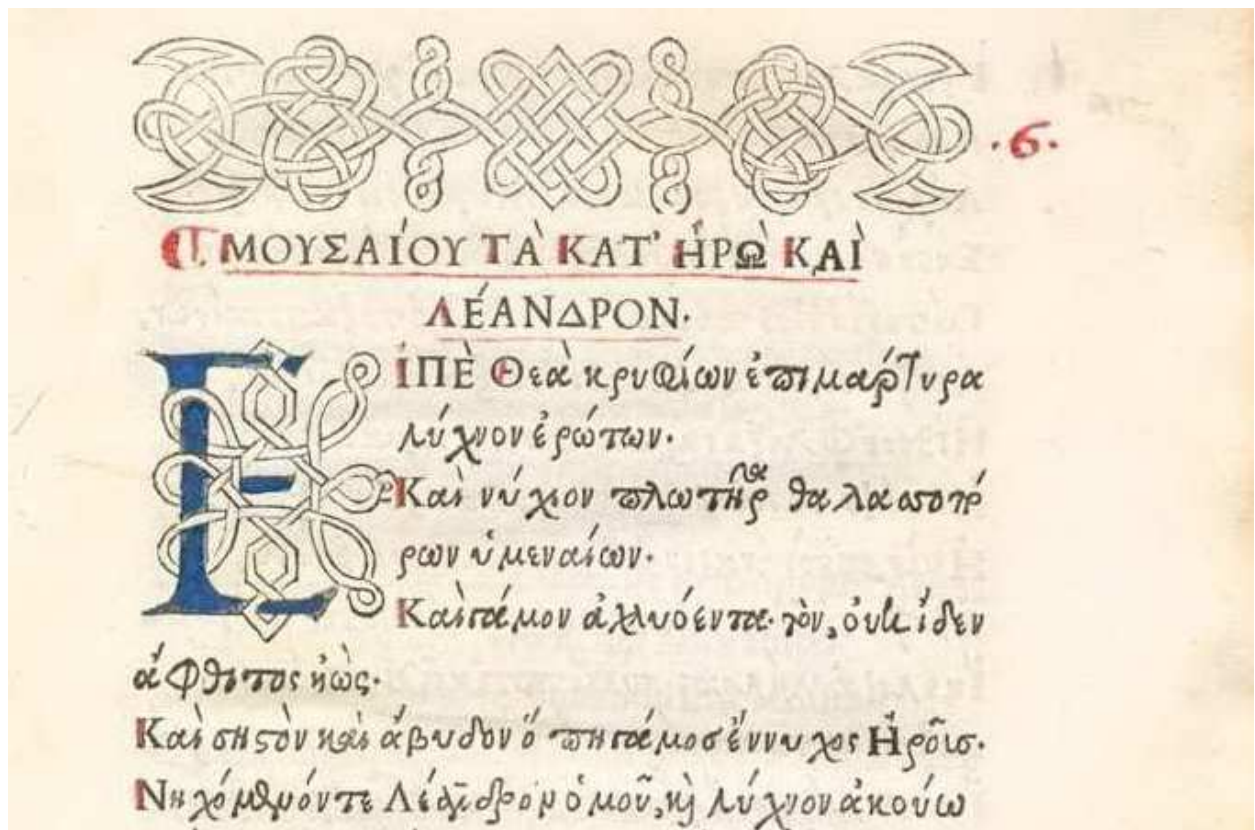 ·6·
ΜΟΥΣΑΊΟΥ ΤᾺ ΚΑΤ' ἩΡῺ ΚΑῚ
ΛΈΑΝΔΡΟΝ.
ΕἸΠῈ Θεὰ κρυφίων ἐπιμάρτυρα
λύχνον ἐρώτων.
Καὶ νύχιον πλωτῆρα θαλασσοπό
ρων ὑμεναίων.
Καὶ γάμον ἀχλυόεντα. τὸν, οὐκ ἴδεν
ἄφθιτος ἠώς.
Καὶ σηστὸν καὶ ἄβυδον ὅπη γάμοσ ἔννυχος Ἡροῖσ.
Νηχόμενόν τε Λέανδρον ὁμοῦ, καὶ λύχνον ἀκούω